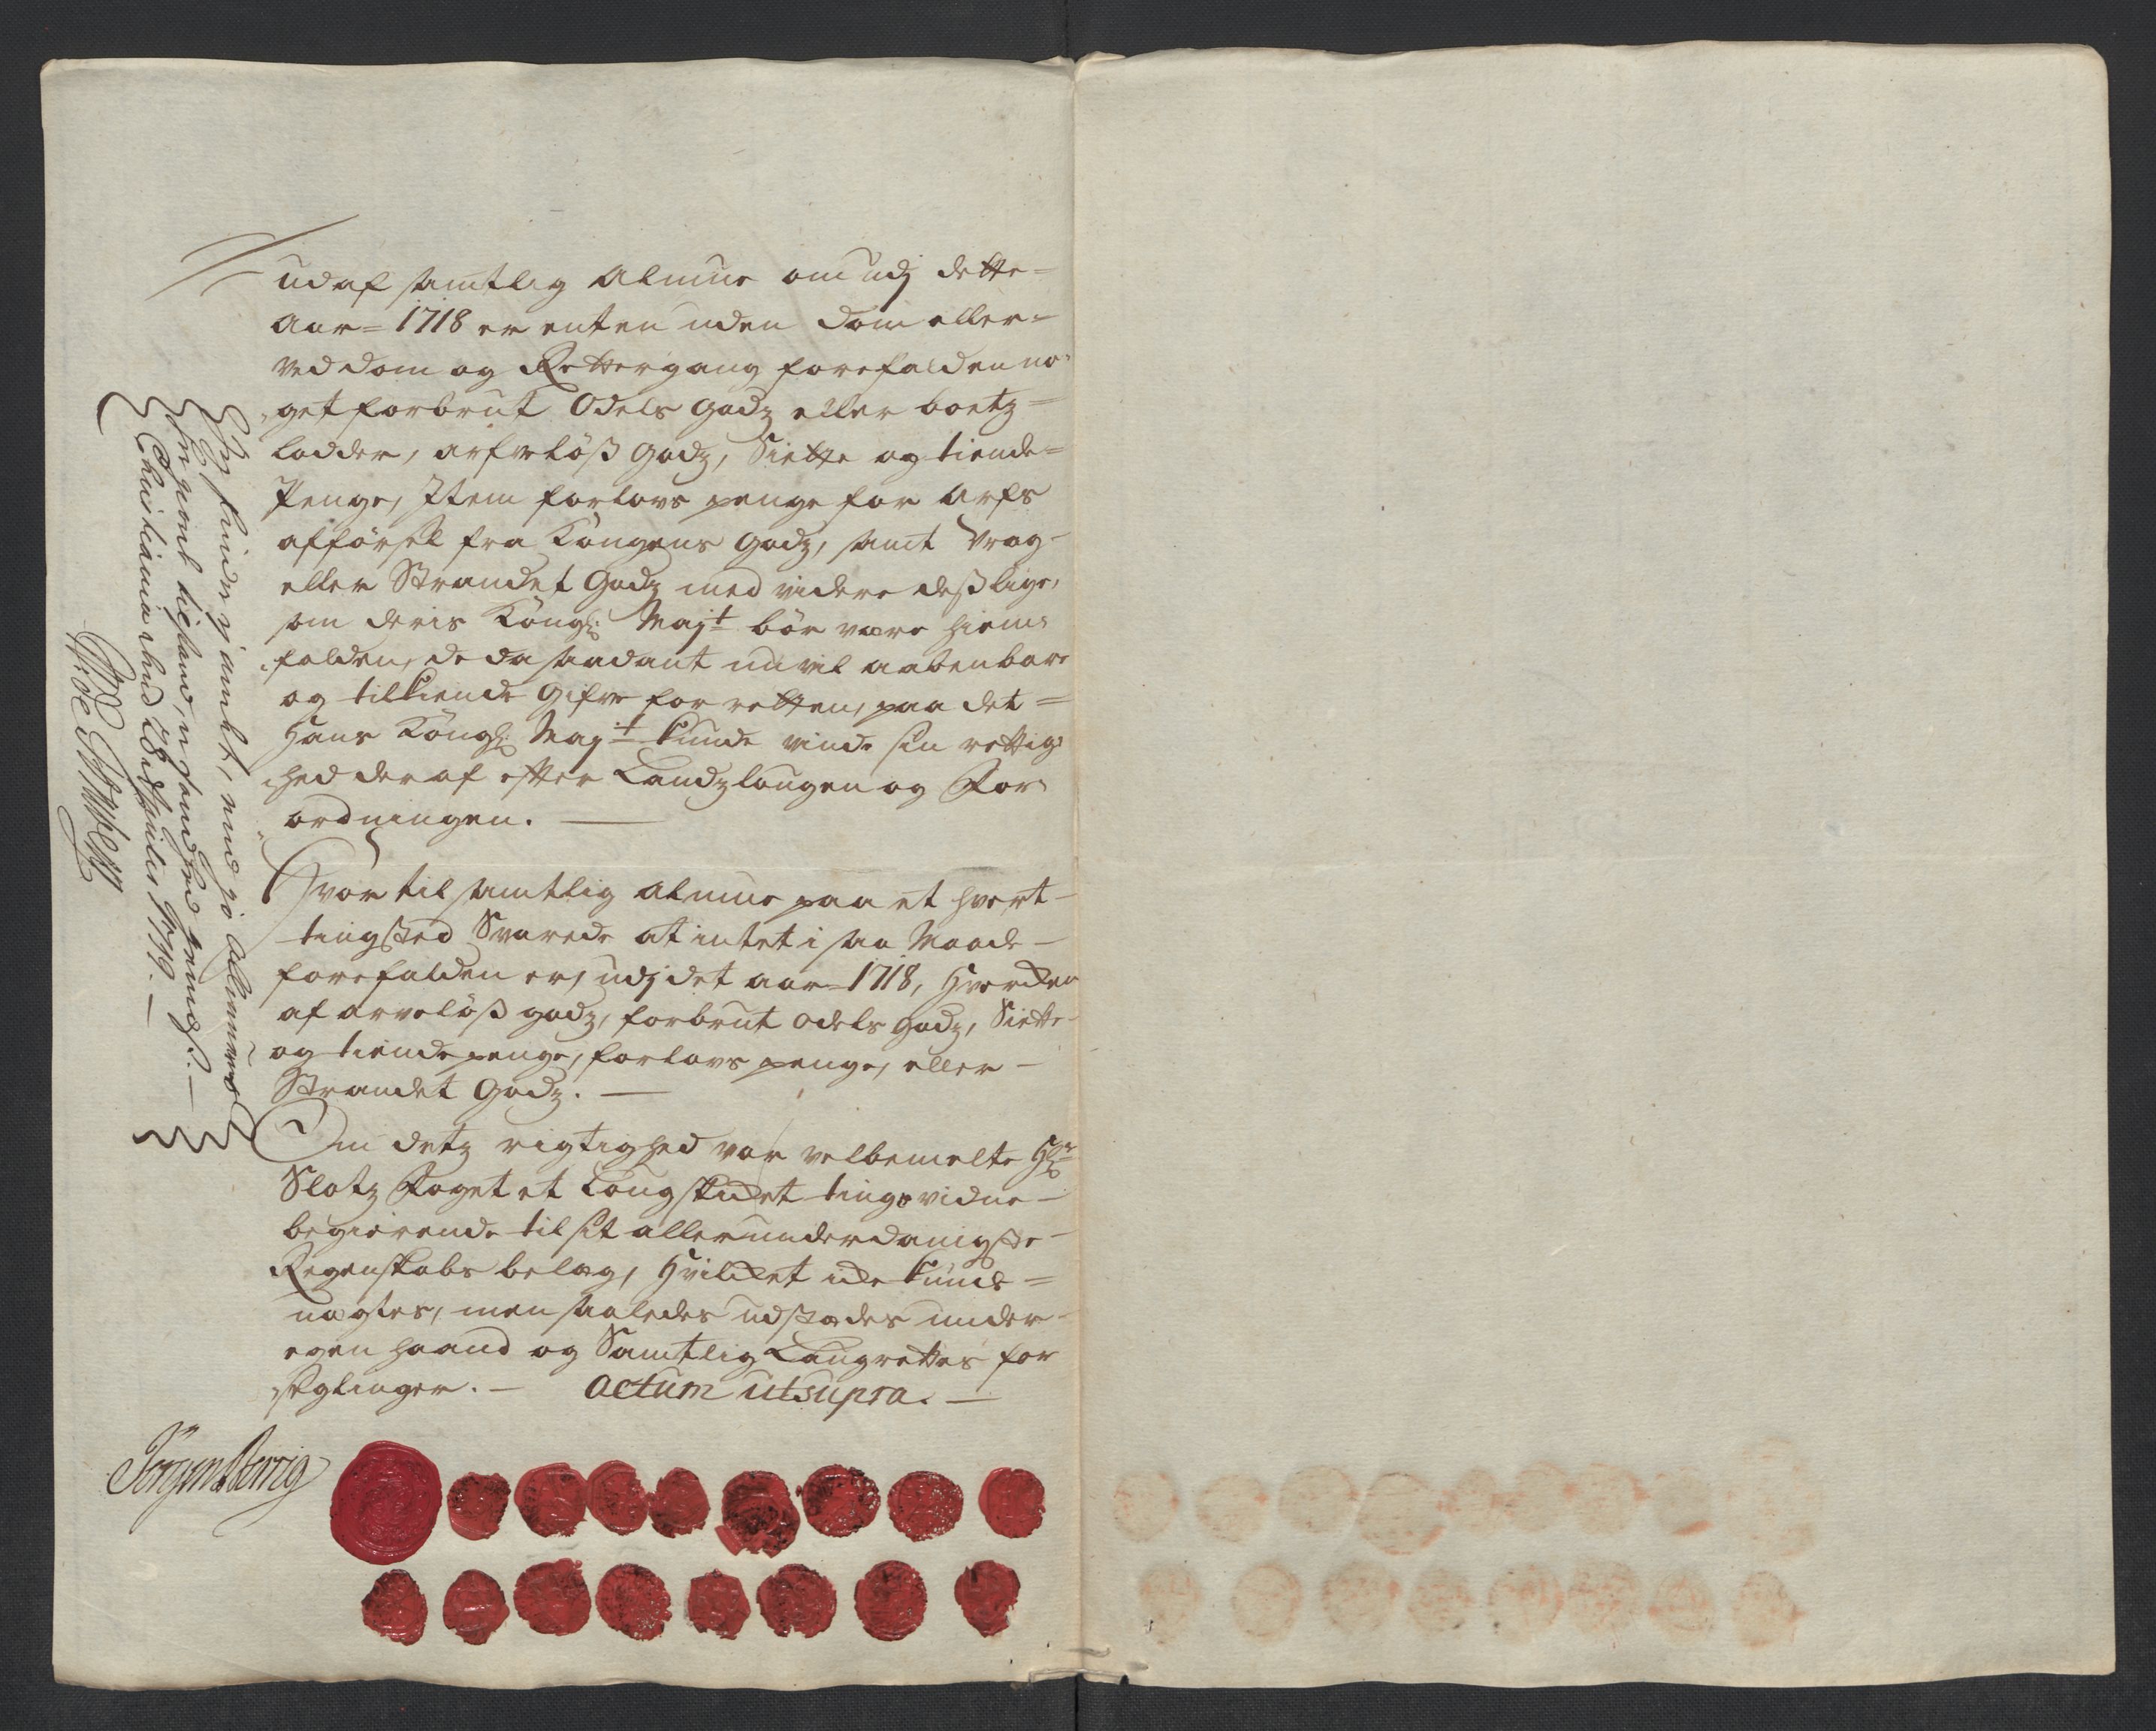 udaf samtlig Almue om udj dette=
Aar= 1718 er enten uden dom eller=
ved dom og Rettergang forefalden no=
get forbrut Odels godz eller boetz=
lodder, arfveløß godz, Siette og tiende=
Penge, Item forlovs penge for Arfs
afførsel fra Kongens godz, samt Vrag-
eller Strandet Godz med videre deßlige,
som deris Köngl: Mayt bör være hiem=
falden, de da saadant nu vil aabenbare
og tilkiende gifve for retten, paa det=
Hans Köngl: Mayt kunde vinde sin rettig=
hed deraf efter Landzlougen og For=
ordningen. —
Hvortil samtlig almue paa et hvert-
tingsted Svarede at intet i saa Maade-
forefalden er, udj det aar= 1718, Hverken
af arveløß godz, forbrut odels godz, Siette-
og tiende penge, forlovs penge, eller-
Strandet Godz. —
Om detz rigtighed var velbemelte Hr
Slotz Foget et Lougskikket tings vidne-
begierende til sit allerunderdanigste-
Regenskabs belæg, Hvilket icke kunde=
nægtes, men saaledes udstædes under-
egen haand og Samtlig Laugrettes for
seglinger. — Actum ut supra. —
Jørgen
Christiania 1719. —